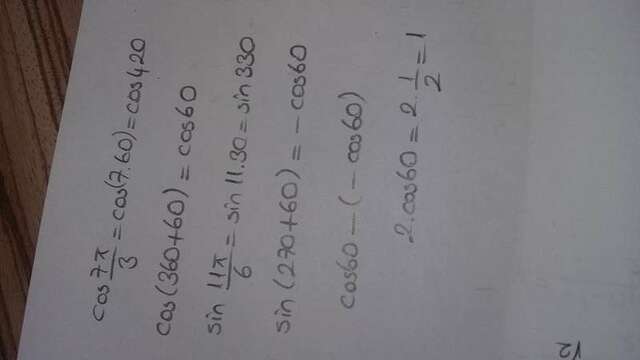 cos 7π/3 = cos(7.60) = cos420
cos(360+60) = cos60
sin 11π/6 = sin 11.30 = sin330
sin(270+60) = -cos60
cos60 - (-cos60)
2.cos60 = 2.1/2 = 1
√2